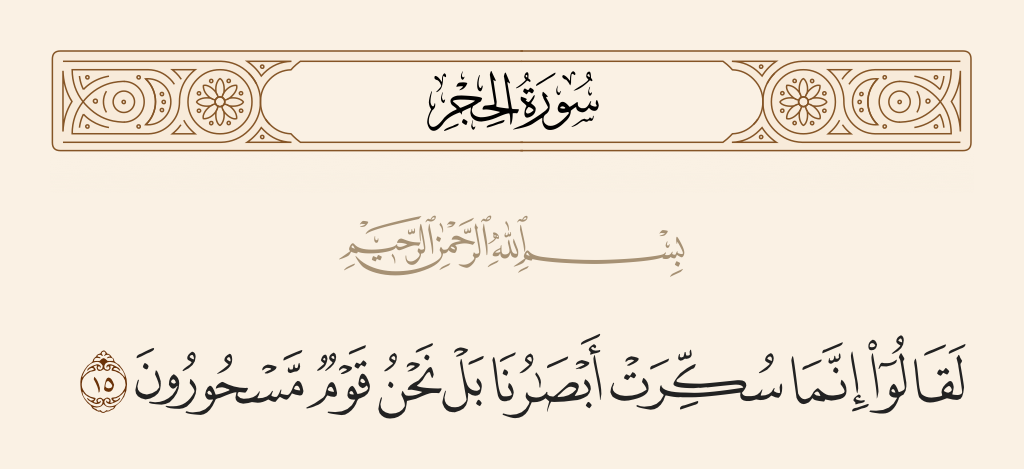 سُورَةُ الحِجْرِ
بِسْمِ ٱللَّهِ ٱلرَّحْمَٰنِ ٱلرَّحِيمِ
لَقَالُوٓا۟ إِنَّمَا سُكِّرَتْ أَبْصَـٰرُنَا بَلْ نَحْنُ قَوْمٌ مَّسْحُورُونَ ١٥